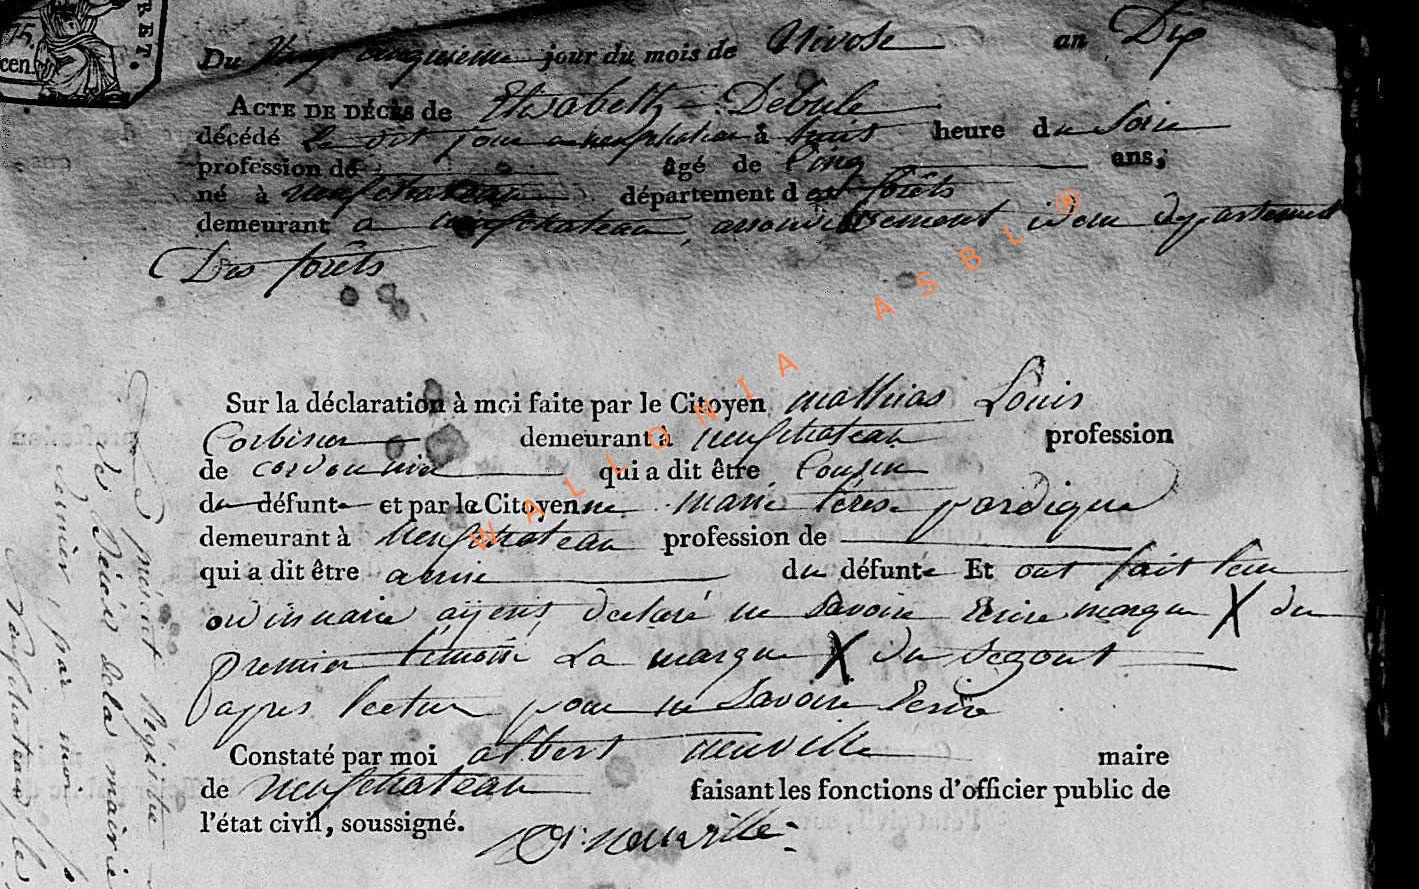 75.
cen.
RET.
Du Vingt cinquieme jour du mois de Nivose an Dix
ACTE DE DÉCÈS de Elisabeth Debule
décédé Le dit jour a neufchateau à huit heure du Soir
profession de âgé de Cinq ans,
né à neufchateau département des forêts
demeurant a neufchateau, arondissement idem departement
Des forêts
Sur la déclaration à moi faite par le Citoyen mathias Louis
Corbisier demeurant à neufchateau profession
de cordonnier qui a dit être Cousin
du défunte et par la Citoyenne marie térese pordique
demeurant à Neufchateau profession de
qui a dit être amie du défunte Et ont fait leur
ordinnaire ayent declaré ne Savoir Ecrire marque X du
premier temoin La marque X du Segont
apres lecture pour ne Savoir Ecrire
Constaté par moi albert neuville maire
de neufchateau faisant les fonctions d'officier public de
l'état civil, soussigné.
A: neuville
présent Régistre
des Décès dela mairie
dernier, par moi
Neufchateau, le
WALLONIA ASBL ®